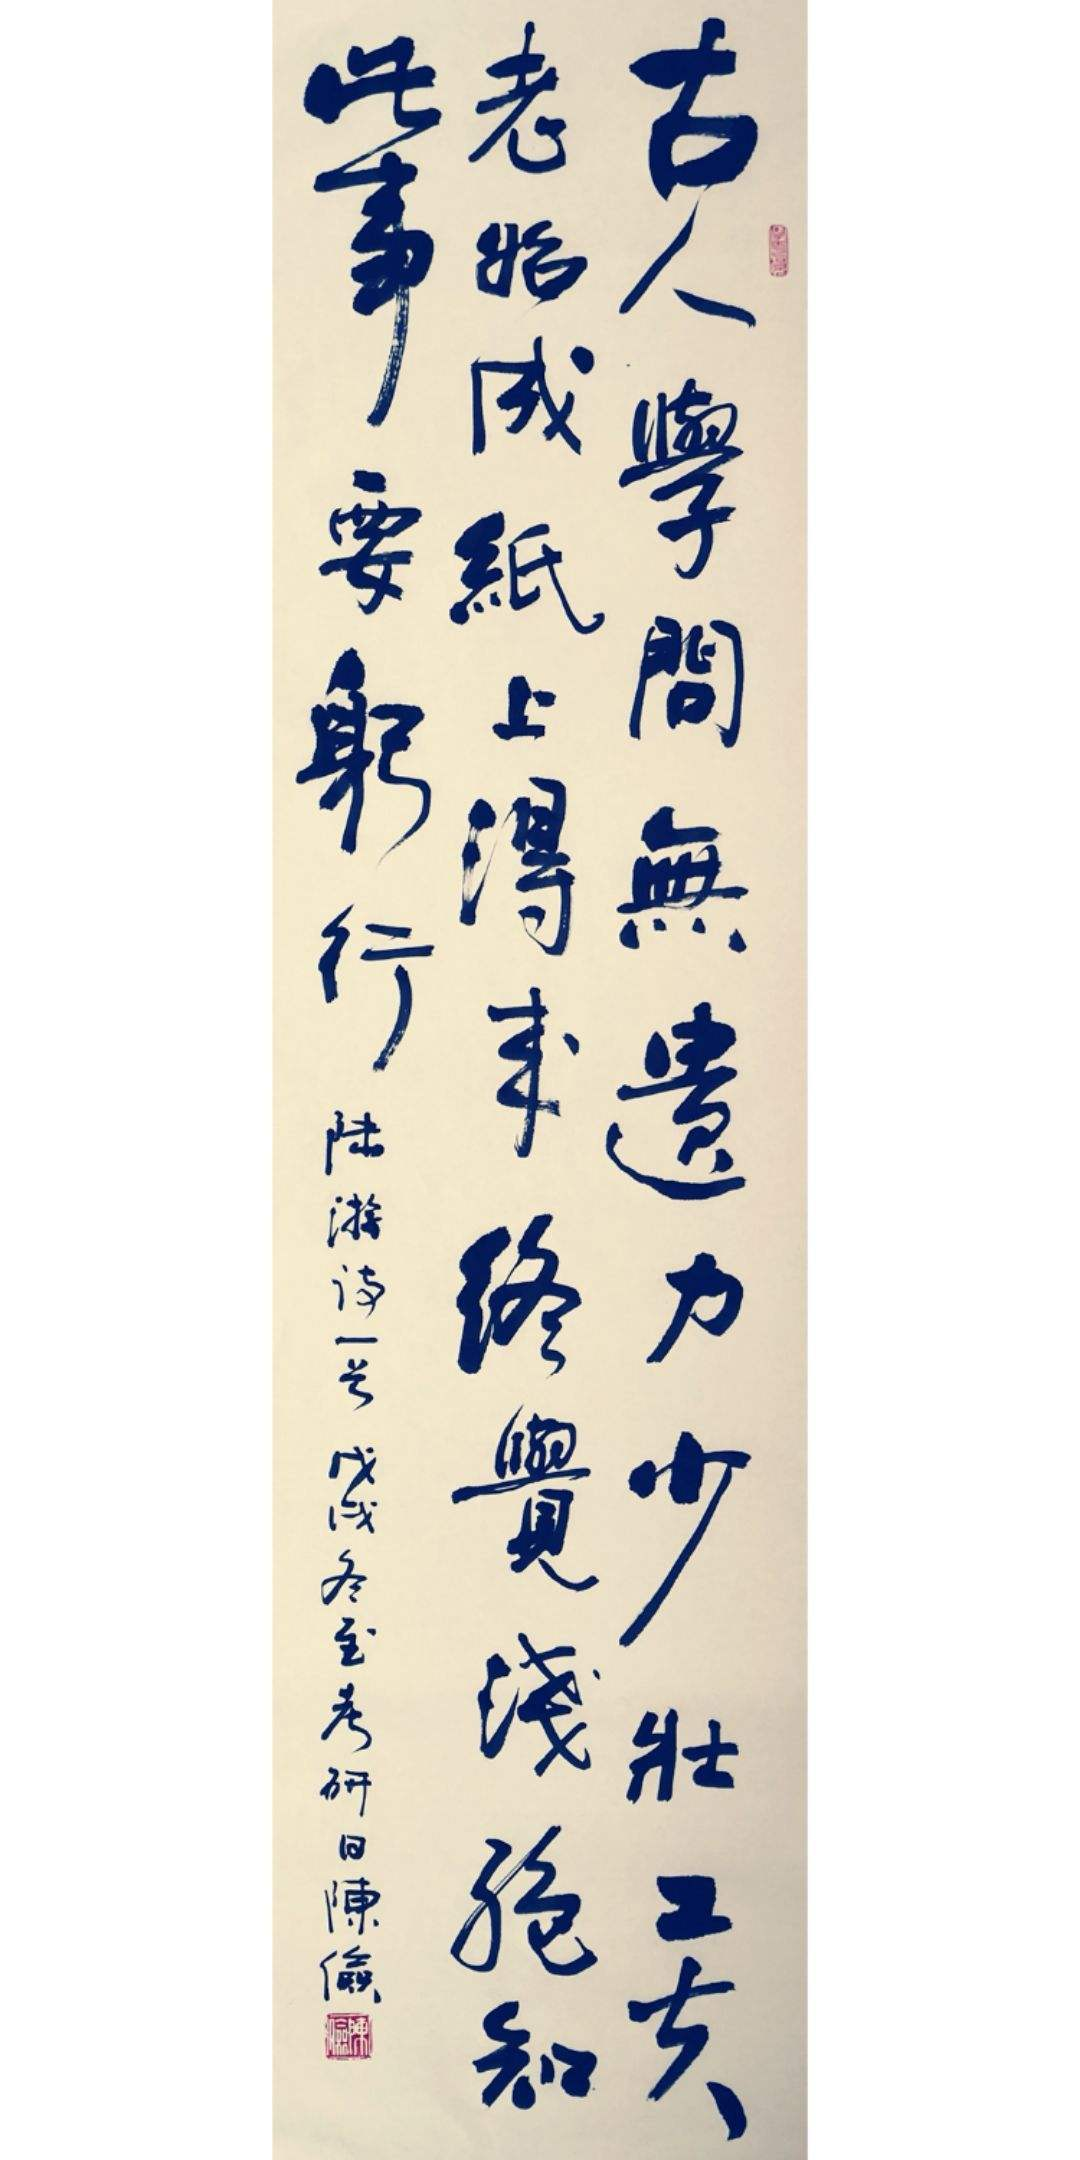 古人學問無遺力少壯工夫
老始成紙上得来終覺淺絕知
此事要躬行
陸游詩一首 戊戌冬至考研日陳儉
陳儉